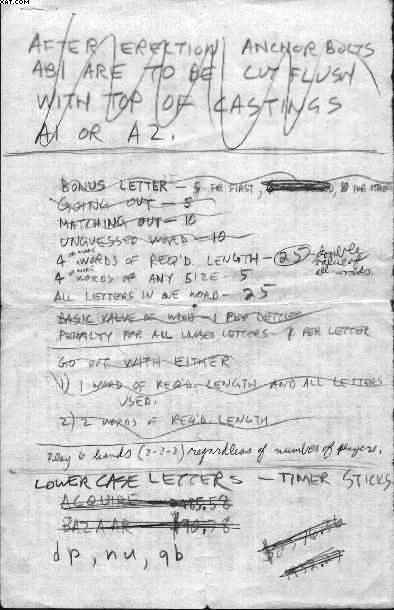 XAT.COM
AFTER ERECTION ANCHOR BOLTS
AB1 ARE TO BE CUT FLUSH
WITH TOP OF CASTINGS
A1 OR A2.
BONUS LETTER - 5 FOR FIRST, 10 FOR
GOING OUT - 5
MATCHING OUT - 10
UNGUESSED WORD - 10
4 OR MORE WORDS OF REQ'D. LENGTH - 25 -
4 OR MORE WORDS OF ANY SIZE - 5
ALL LETTERS IN ONE WORD - 25
BASIC VALUE OF WORD - 1 PER LETTER
PENALTY FOR ALL UNUSED LETTERS - 1 PER LETTER
GO OUT WITH EITHER
1) 1 WORD OF REQ'D. LENGTH AND ALL LETTERS
USED.
2) 2 WORDS OF REQ'D LENGTH
Play 6 hands (2-2-2) regardless of number of players.
LOWER CASE LETTERS - TIMER STICKS
ACQUIRE
BAZAAR $90.58
dp, nu, qb